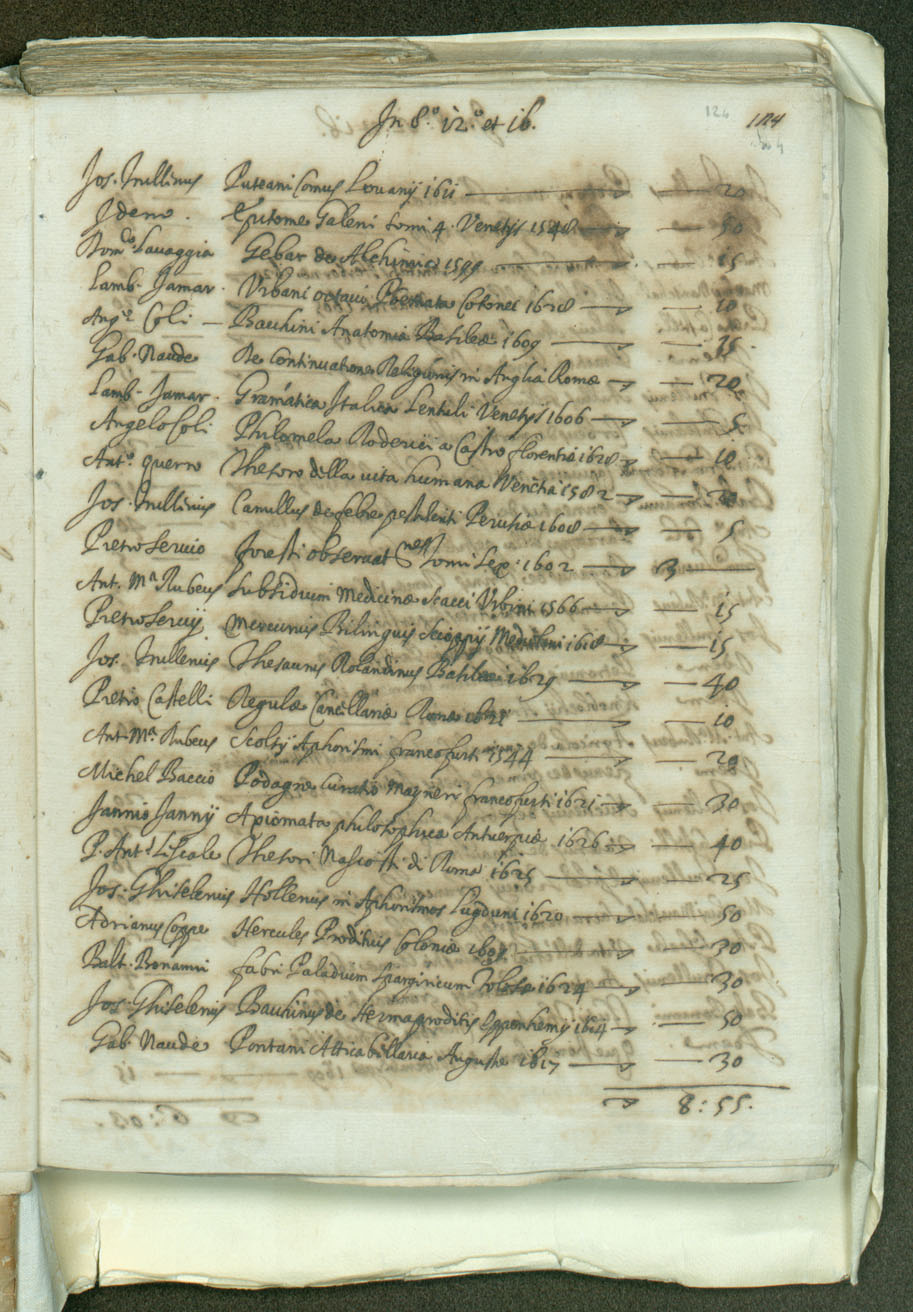 124
124
In 8.º 12.º et 16.
Jos. Trullinus Puteani Comus Lovanij 1611 — 20
Idem. Epitome Galeni tomi 4. Venetijs 1548 — 50
Domco Lavaggia Gebar de Alchimia — 15
Lamb. Jamar. Urbani octavi Poemata Colonei 1628 — 10
Angº Coli — Bauhini Anatomia Basileæ 1609 — 35
Gab. Naude De Continuatione Religionis in Anglia Romæ — 20
Lamb. Jamar. Gramática Italica Lentuli Venetijs 1606 — 5
Angelo Coli Philomela Roderici a Castro florentiæ 1628 — 10
Antº. querro Thesoro della vita humana Venetia 1582 —
Jos. Trullinus Camullus de febre pestilenti Perusiæ 1608 — 5
Pietro Servio foresti observatnes Tomi sex: 1602 — 3 —
Ant. Mª Rubeus Subsidium Medicinæ Scacci Urbini 1566 — 15
Pietro Servij Mercurius Bilinguis Scioppij 1618 — 15
Jos. Trullenius Thesaurus Rolandinus Basileæ 1629 — 40
Pietro Castelli Regulæ Cancillariæ Romæ — 10
Ant. Mª. Rubeus Scoltij Aphorismi francofurti 1544 — 20
Michel Baccio Podagræ Curatio Mazneri francofurti 1621 — 30
Jannio Jannij Axiomata philosophica Antuerpiæ 1626 — 40
P. Antº Liscale Thesori Nascosti di Roma 1625 — 25
Jos. Ghiselenius Hollerius in Aphorismos Lugduni 1620 — 50
Adrianus Coppe Hercules Prodicius Coloniæ — 30
Balt. Bonanni fabri Paladium Spargiricum Tolosæ 1624 — 30
Jos. Ghiselenius Bauhinus de Hermaproditis Oppenhemij 1614 — 50
Gab. Naude Pontani Attica bellaria Augustæ 1617 — 30
8:55.